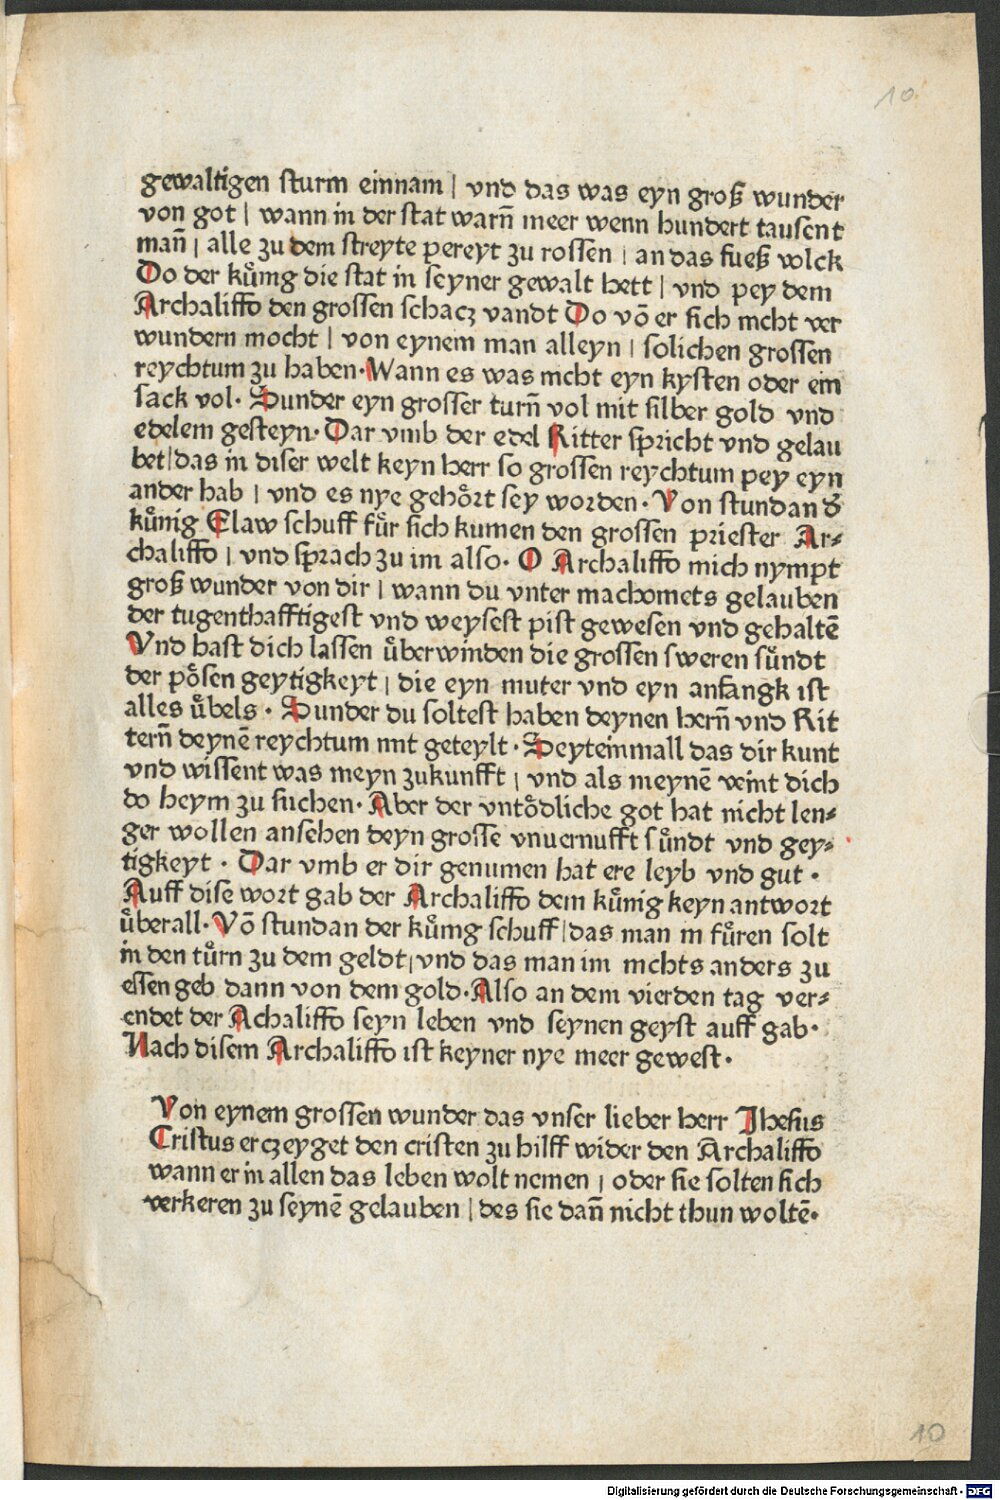 10.
gewaltigen sturm einnam | vnd das was eyn groß wunder
von got | wann in der stat warñ meer wenn hundert tausent
mañ | alle zu dem streyte pereyt zu rossen | an das fueß volck
Do der kuͤnig die stat in seyner gewalt hett | vnd pey dem
Archaliffo den grossen schacz vandt Do vō er sich nicht ver
wundern mocht | von eynem man alleyn | solichen grossen
reychtum zu haben· Wann es was nicht eyn kysten oder ein
sack vol· Sunder eyn grosser turñ vol mit silber gold vnd
edelem gesteyn· Dar vmb der edel Ritter spricht vnd gelau
bet | das in diser welt keyn herr so grossen reychtum pey eyn
ander hab | vnd es nye gehoͤrt sey worden· Von stundan đ
kuͤnig Elaw schuff fuͤr sich kumen den grossen priester Ar⸗
chaliffo | vnd sprach zu im also· O Archaliffo mich nympt
groß wunder von dir | wann du vnter machomets gelauben
der tugenthafftigest vnd weysest pist gewesen vnd gehaltē
Vnd hast dich lassen uͤberwinden die grossen sweren suͤndt
der poͤsen geytigkeyt | die eyn muter vnd eyn anfangk ist
alles uͤbels · Sunder du soltest haben deynen herñ vnd Rit
terñ deynē reychtum mit geteylt · Seyteinmall das dir kunt
vnd wissent was meyn zukunfft | vnd als meynē veint dich
do heym zu suchen· Aber der vntoͤdliche got hat nicht len⸗
ger wollen ansehen deyn grosse vnuernufft suͤndt vnd gey⸗
tigkeyt · Dar vmb er dir genumen hat ere leyb vnd gut ·
Auff dise wort gab der Archaliffo dem kuͤnig keyn antwort
uͤberall· Vō stundan der kuͤnig schuff | das man in fuͤren solt
in den tuͤrn zu dem geldt | vnd das man im nichts anders zu
essen geb dann von dem gold· Also an dem vierden tag ver⸗
endet der Achaliffo seyn leben vnd seynen geyst auff gab·
Nach disem Archaliffo ist keyner nye meer gewest·
Von eynem grossen wunder das vnser lieber herr Jhesus
Cristus erczeyget den cristen zu hilff wider den Archaliffo
wann er in allen das leben wolt nemen | oder sie solten sich
verkeren zu seynē gelauben | des sie dañ nicht thun woltē·
10
Digitalisierung gefördert durch die Deutsche Forschungsgemeinschaft - DFG